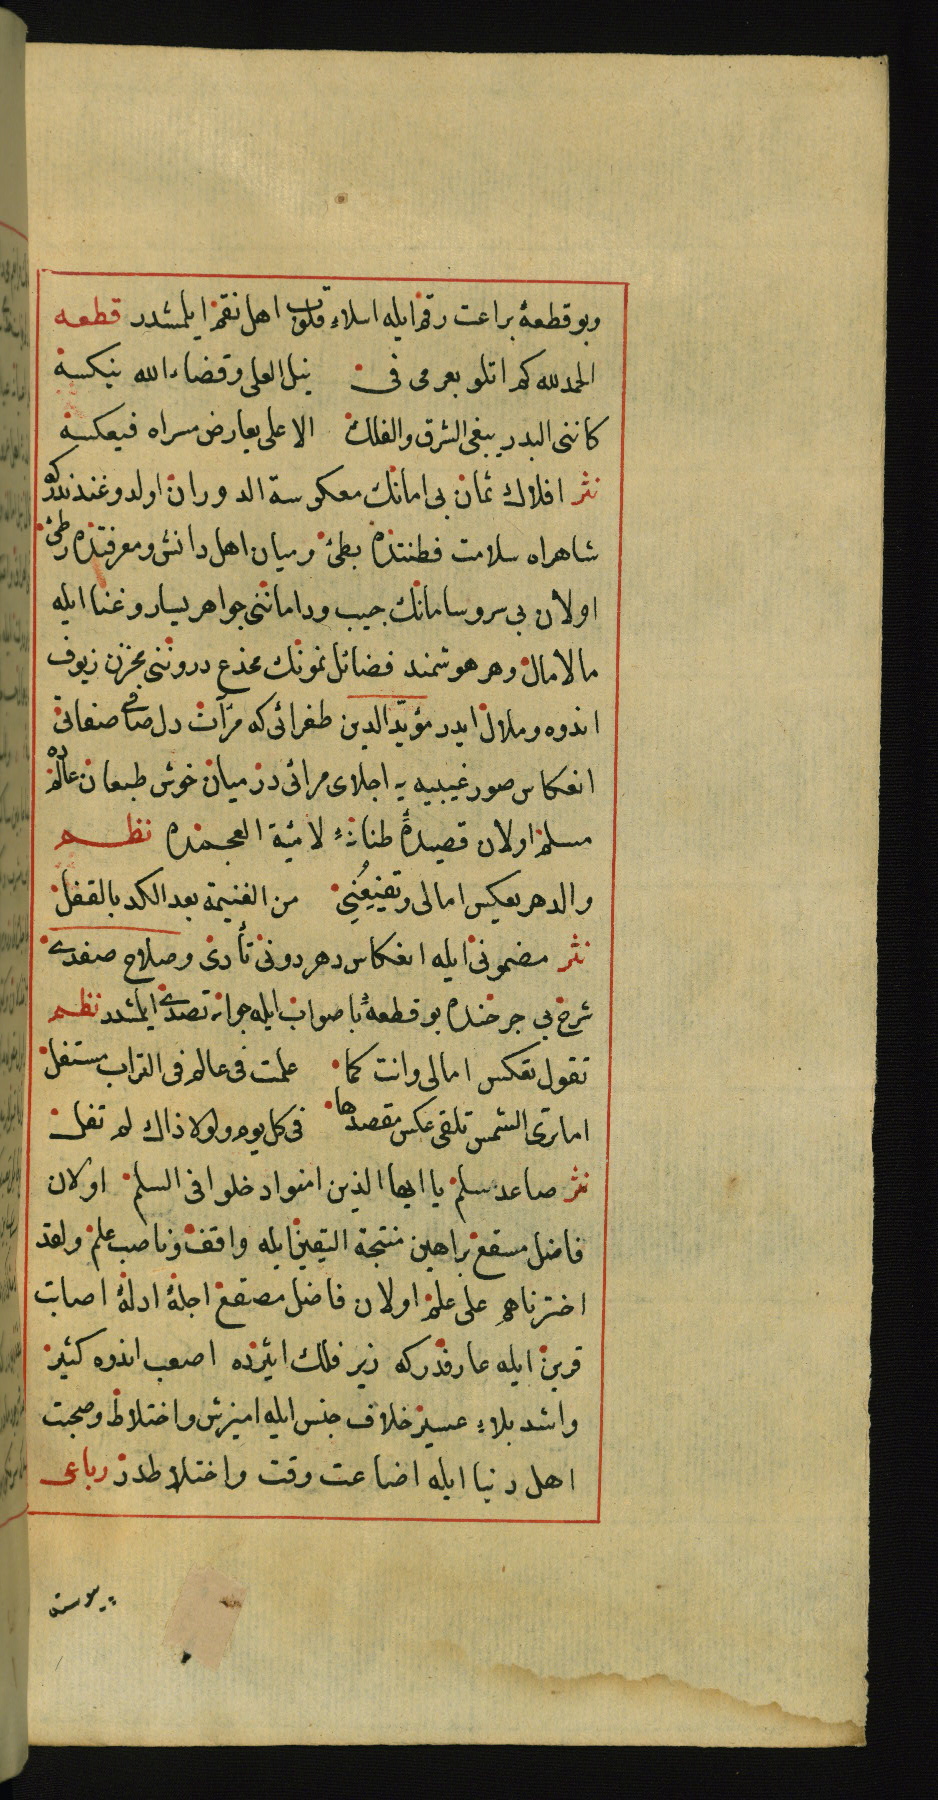 وبو قطعهٔ براعت رقم ايله اسلاء قلوب اهل نقم ايلمشدر قطعه
الحمد لله كم اتلو بعرمى فى نيل العلى وقضاء الله ينكسه
كاننى البدر يبغى الشرق والفلك الاعلى يعارض مسراه فيعكسه
نثر افلاك ثمان بى امانك معكوسة الدوران اولدوغنذندركه
شاهراه سلامت فطنتده بطئ وميان اهل دانش ومعرفتده وطئ
اولان بى سر وسامانك جيب ودامانى جواهر يسار وغنا ايله
مالامال وهر هوشمند فضائل نمونك مخدع دروننى مخزن زيوف
اندوه وملال ايدر مؤيد الدين طغرائى كه مرآت دل صافى صفاتى
انعكاس صور غيبيه يه اجلاى مرائى در ميان خوش طبعان عالمده
مسلم اولان قصيدهٔ طنانهٔ لامية العجمنده نظم
والدهر يعكس امالى وتقنعنى من الغنيمة بعد الكد بالقفل
نثر مضمونى ايله انعكاس دهر دونى تأدى وصلاح صفدى
شرح بى جرحنده بو قطعهٔ با صواب ايله جوابه تصدى ايلمشدر نظم
تقول تعكس امالى وانت كما علمت فى عالم فى التراب مستفل
اما ترى الشمس تلقى عكس مقصدها فى كل يوم ولولا ذاك لم تفل
نثر صاعد سلم يا ايها الذين امنوا دخلوا فى السلم اولان
فاضل مسقع براهين منتجة اليقين ايله واقف وناصب علم ولقد
اخترناهم على علم اولان فاضل مصقع اجلهٔ ادلهٔ اصابت
قرين ايله عارفدركه زير فلك اثيرده اصعب اندوه كثير
واشد بلاء عسير خلاف جنس ايله اميزش واختلاط وصحبت
اهل دنيا ايله اضاعت وقت واختلاطدر رباعى